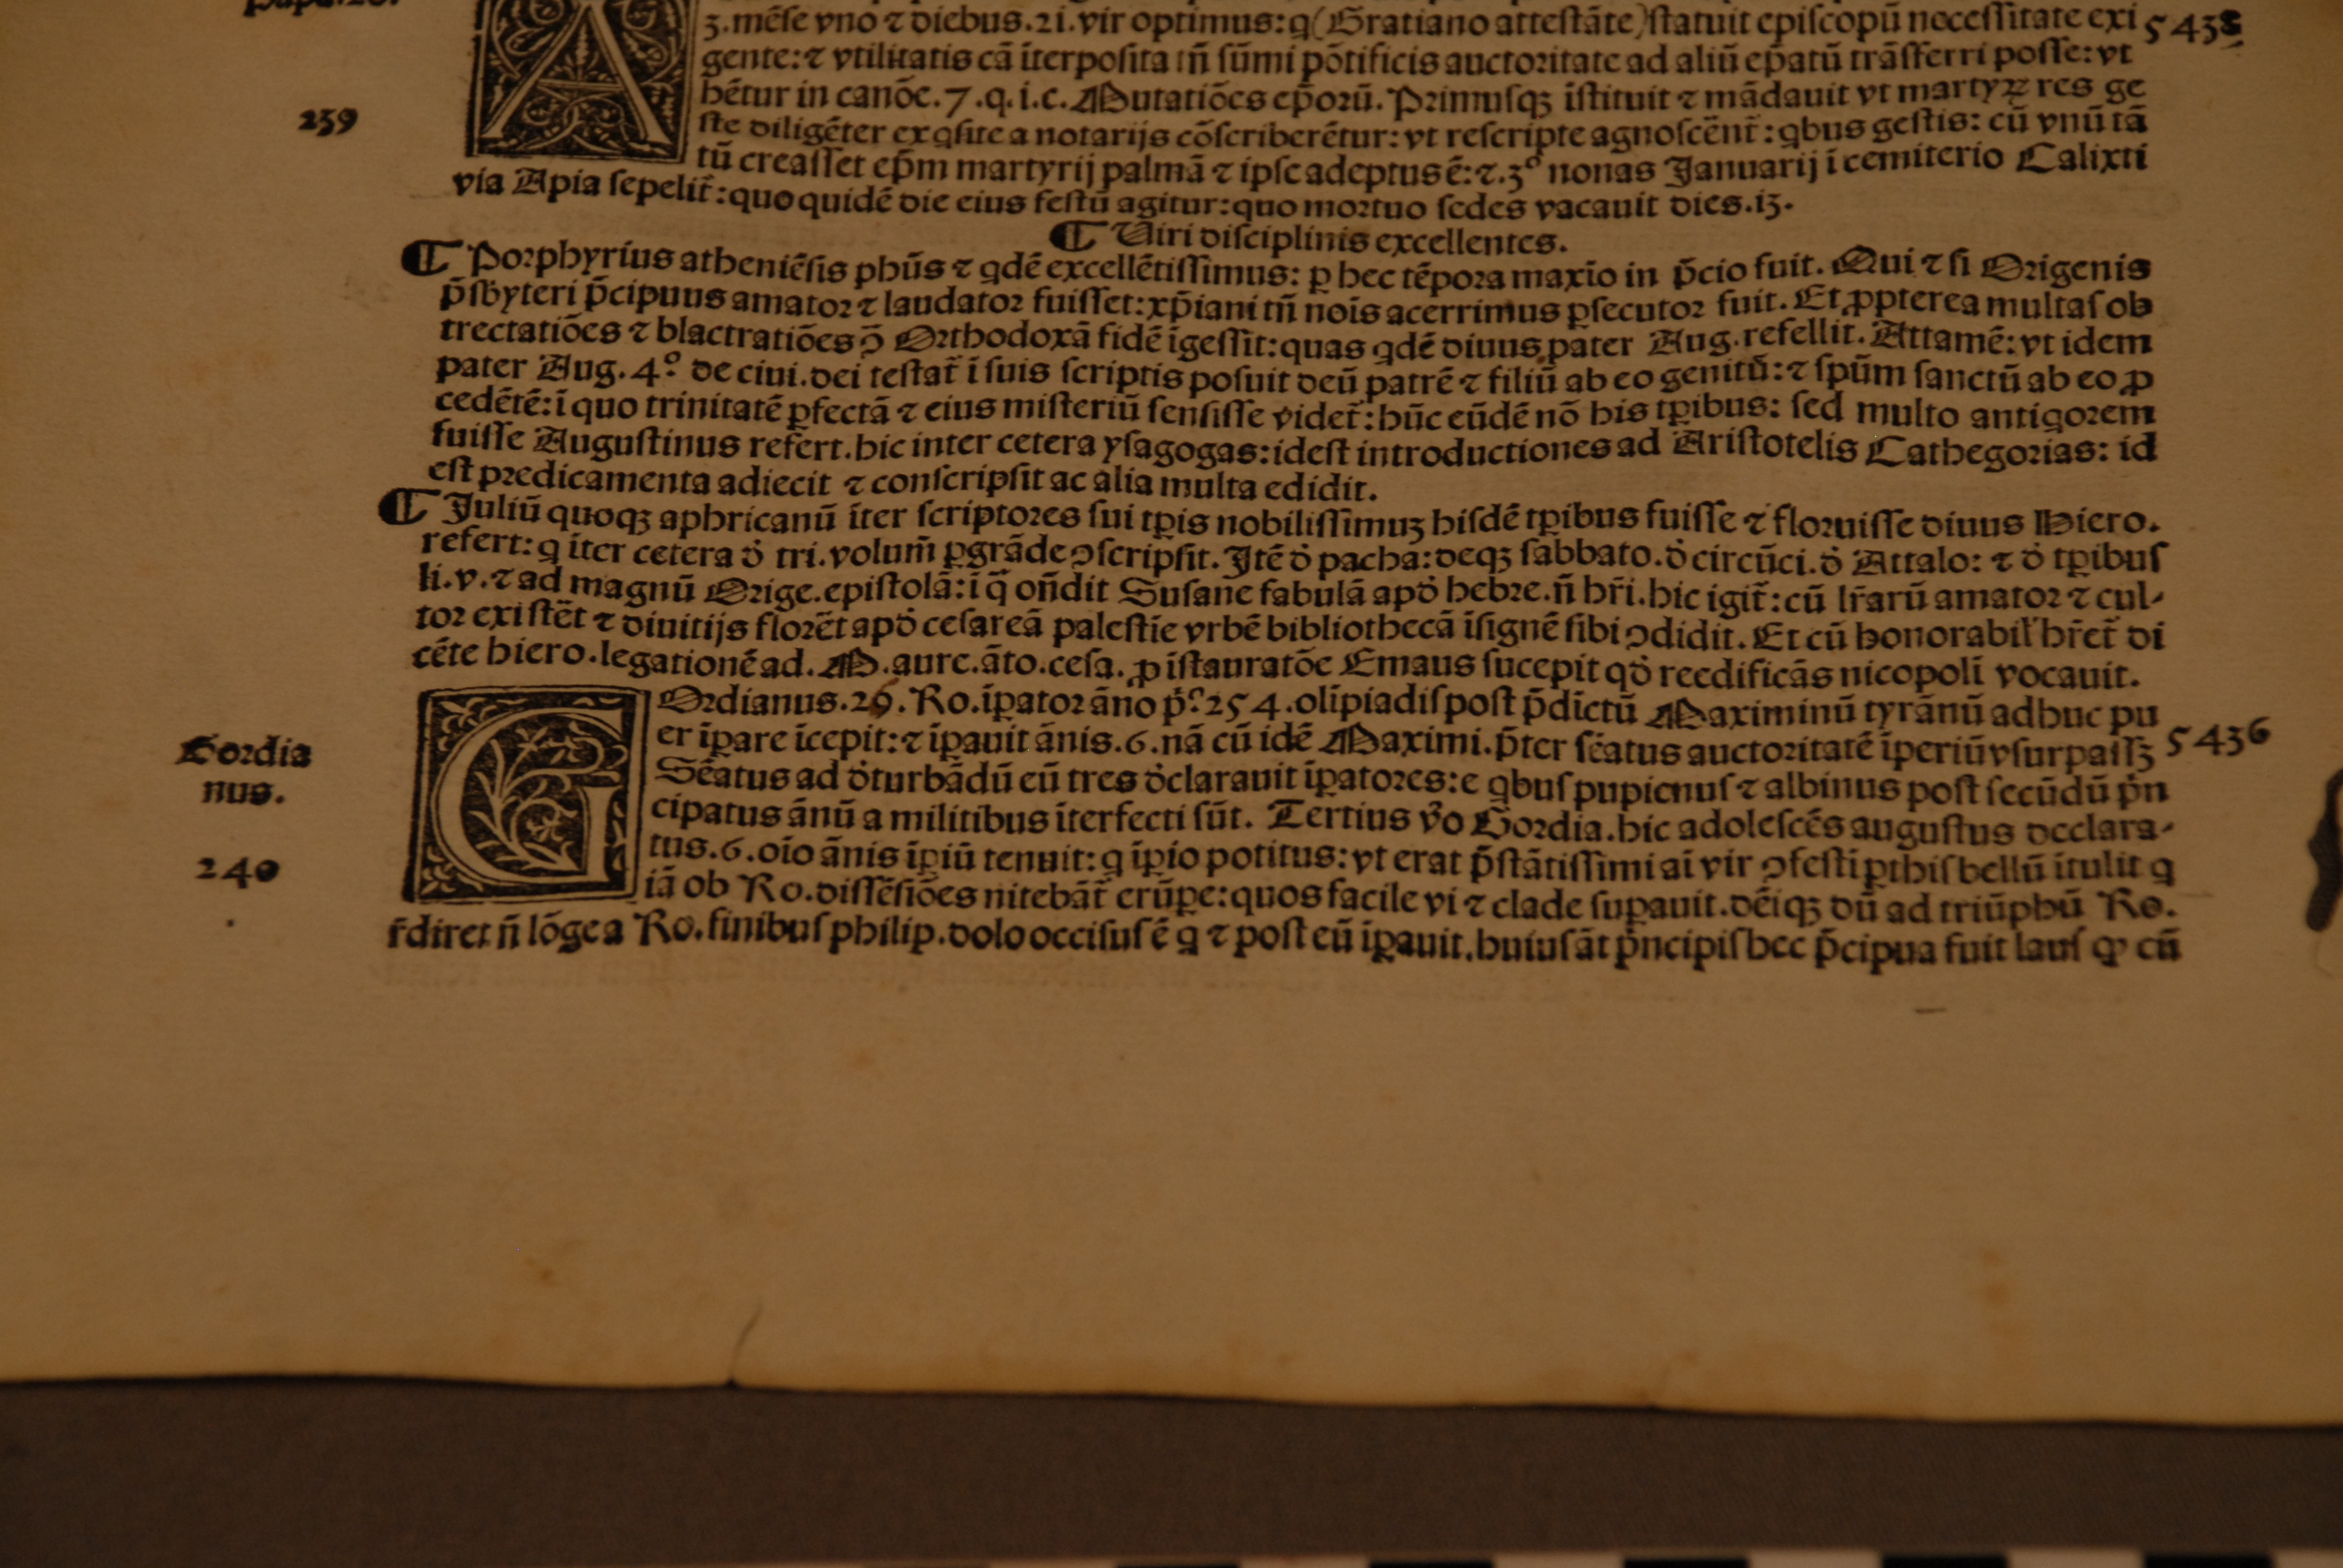 3.mẽſe vno ⁊ diebus.21.vir optimus:q(Gratiano atteſtãte)ſtatuit epiſcopũ neceſſitate exi
5438
gente:⁊ vtilitatis cã ĩterpoſita tñ ſũmi põtificis auctoritate ad aliũ ep̃atũ trãſferri poſſe:vt
239
hẽtur in canõe.7.q.i.c.Mutatiões ep̃orũ. Primuſqꝫ ĩſtituit ⁊ mãdauit vt martyꝝ res ge
ſte diligẽter exqſite a notarijs cõſcriberẽtur:vt reſcripte agnoſcẽnt̃:qbus geſtis: cũ vnũ tã
tũ creaſſet ep̃m martyrij palmã ⁊ ipſe adeptus ẽ:⁊.3º nonas Januarij ĩ cemiterio Calixti
via Apia ſepelit̃:quo quidẽ die eius feſtũ agitur:quo mortuo ſedes vacauit dies.13.
¶ Viri diſciplinis excellentes.
¶ Porphyrius atheniẽſis phũs ⁊ qdẽ excellẽtiſſimus: ꝑ hec tẽpora maxĩo in p̃cio fuit. Qui ⁊ ſi Origenis
p̃ſbyteri p̃cipuus amator ⁊ laudator fuiſſet:xp̃iani tñ noĩs acerrimus ꝑſecutor fuit. Et ꝓpterea multaſ ob
trectatiões ⁊ blactratiões ↄ̃ Orthodoxã fidẽ ĩgeſſit:quas qdẽ diuus pater Aug.refellit. Attamẽ: vt idem
pater Aug.4º de ciui.dei teſtat̃ ĩ ſuis ſcriptis poſuit deũ patrẽ ⁊ filiũ ab eo genitũ:⁊ ſpũm ſanctũ ab eo ꝓ
cedẽtẽ:ĩ quo trinitatẽ ꝑfectã ⁊ eius miſteriũ ſenſiſſe videt̃:hũc eũdẽ nõ his tꝑibus: ſed multo antiqorem
fuiſſe Auguſtinus refert.hic inter cetera yſagogas:ideſt introductiones ad Ariſtotelis Cathegorias: id
eſt predicamenta adiecit ⁊ conſcripſit ac alia multa edidit.
¶ Juliũ quoqꝫ aphricanũ ĩter ſcriptores ſui tꝑis nobiliſſimuꝫ hiſdẽ tꝑibus fuiſſe ⁊ floruiſſe diuus Hiero.
refert:q ĩter cetera ď tri.volum̃ ꝑgrãde ↄſcripſit. Itẽ ď pacha:deqꝫ ſabbato.ď circũci.ď Attalo: ⁊ ď tꝑibuſ
li.v.⁊ ad magnũ Orige.epiſtolã:ĩ q̃ on̄dit Suſane fabulã apď hebre.ñ hr̃i.hic igit̃:cũ lr̃arũ amator ⁊ cul-
tor exiſtẽt ⁊ diuitijs florẽt apď ceſareã paleſtĩe vrbẽ bibliothecã ĩſignẽ ſibi ↄdidit. Et cũ honorabil̃ hr̃et̃ di
cẽte hiero.legationẽ ad.M.aure.ãto.ceſa.ꝓ ĩſtauratõe Emaus ſucepit qď reedificãs nicopolĩ vocauit.
Gordia
nus.
240
GOrdianus.26.Ro.ĩꝑator ãno p̃º.254.olĩpiadiſ poſt p̃dictũ Maximinũ tyrãnũ adhuc pu
er ĩꝑare ĩcepit:⁊ ĩꝑauit ãnis.6.nã cũ idẽ Maximi.p̃ter ſẽatus auctoritatẽ ĩperiũ vſurpaſſꝫ
5436
Sẽatus ad ďturbãdũ eũ tres ďclarauit ĩꝑatores:e qbuſ pupienuſ ⁊ albinus poſt ſecũdũ p̃n
cipatus ãnũ a militibus ĩterfecti ſũt. Tertius ṽo Gordia.hic adoleſcẽs auguſtus declara-
tus.6.oĩo ãnis ĩꝑiũ tenuit:q ĩꝑio potitus:vt erat p̃ſtãtiſſimi aĩ vir ↄfeſtĩ ꝑthiſ bellũ ĩtulit q
iã ob Ro.diſſẽſiões nitebãt̃ erũꝑe:quos facile vi ⁊ clade ſuꝑauit.dẽiqꝫ dũ ad triũphũ Ro.
r̃diret ñ lõge a Ro.finibuſ philip.dolo occiſuſ ẽ q ⁊ poſt eũ ĩꝑauit.huiuſ ãt p̃ncipiſ hec p̃cipua fuit lauſ ꝙ cũ